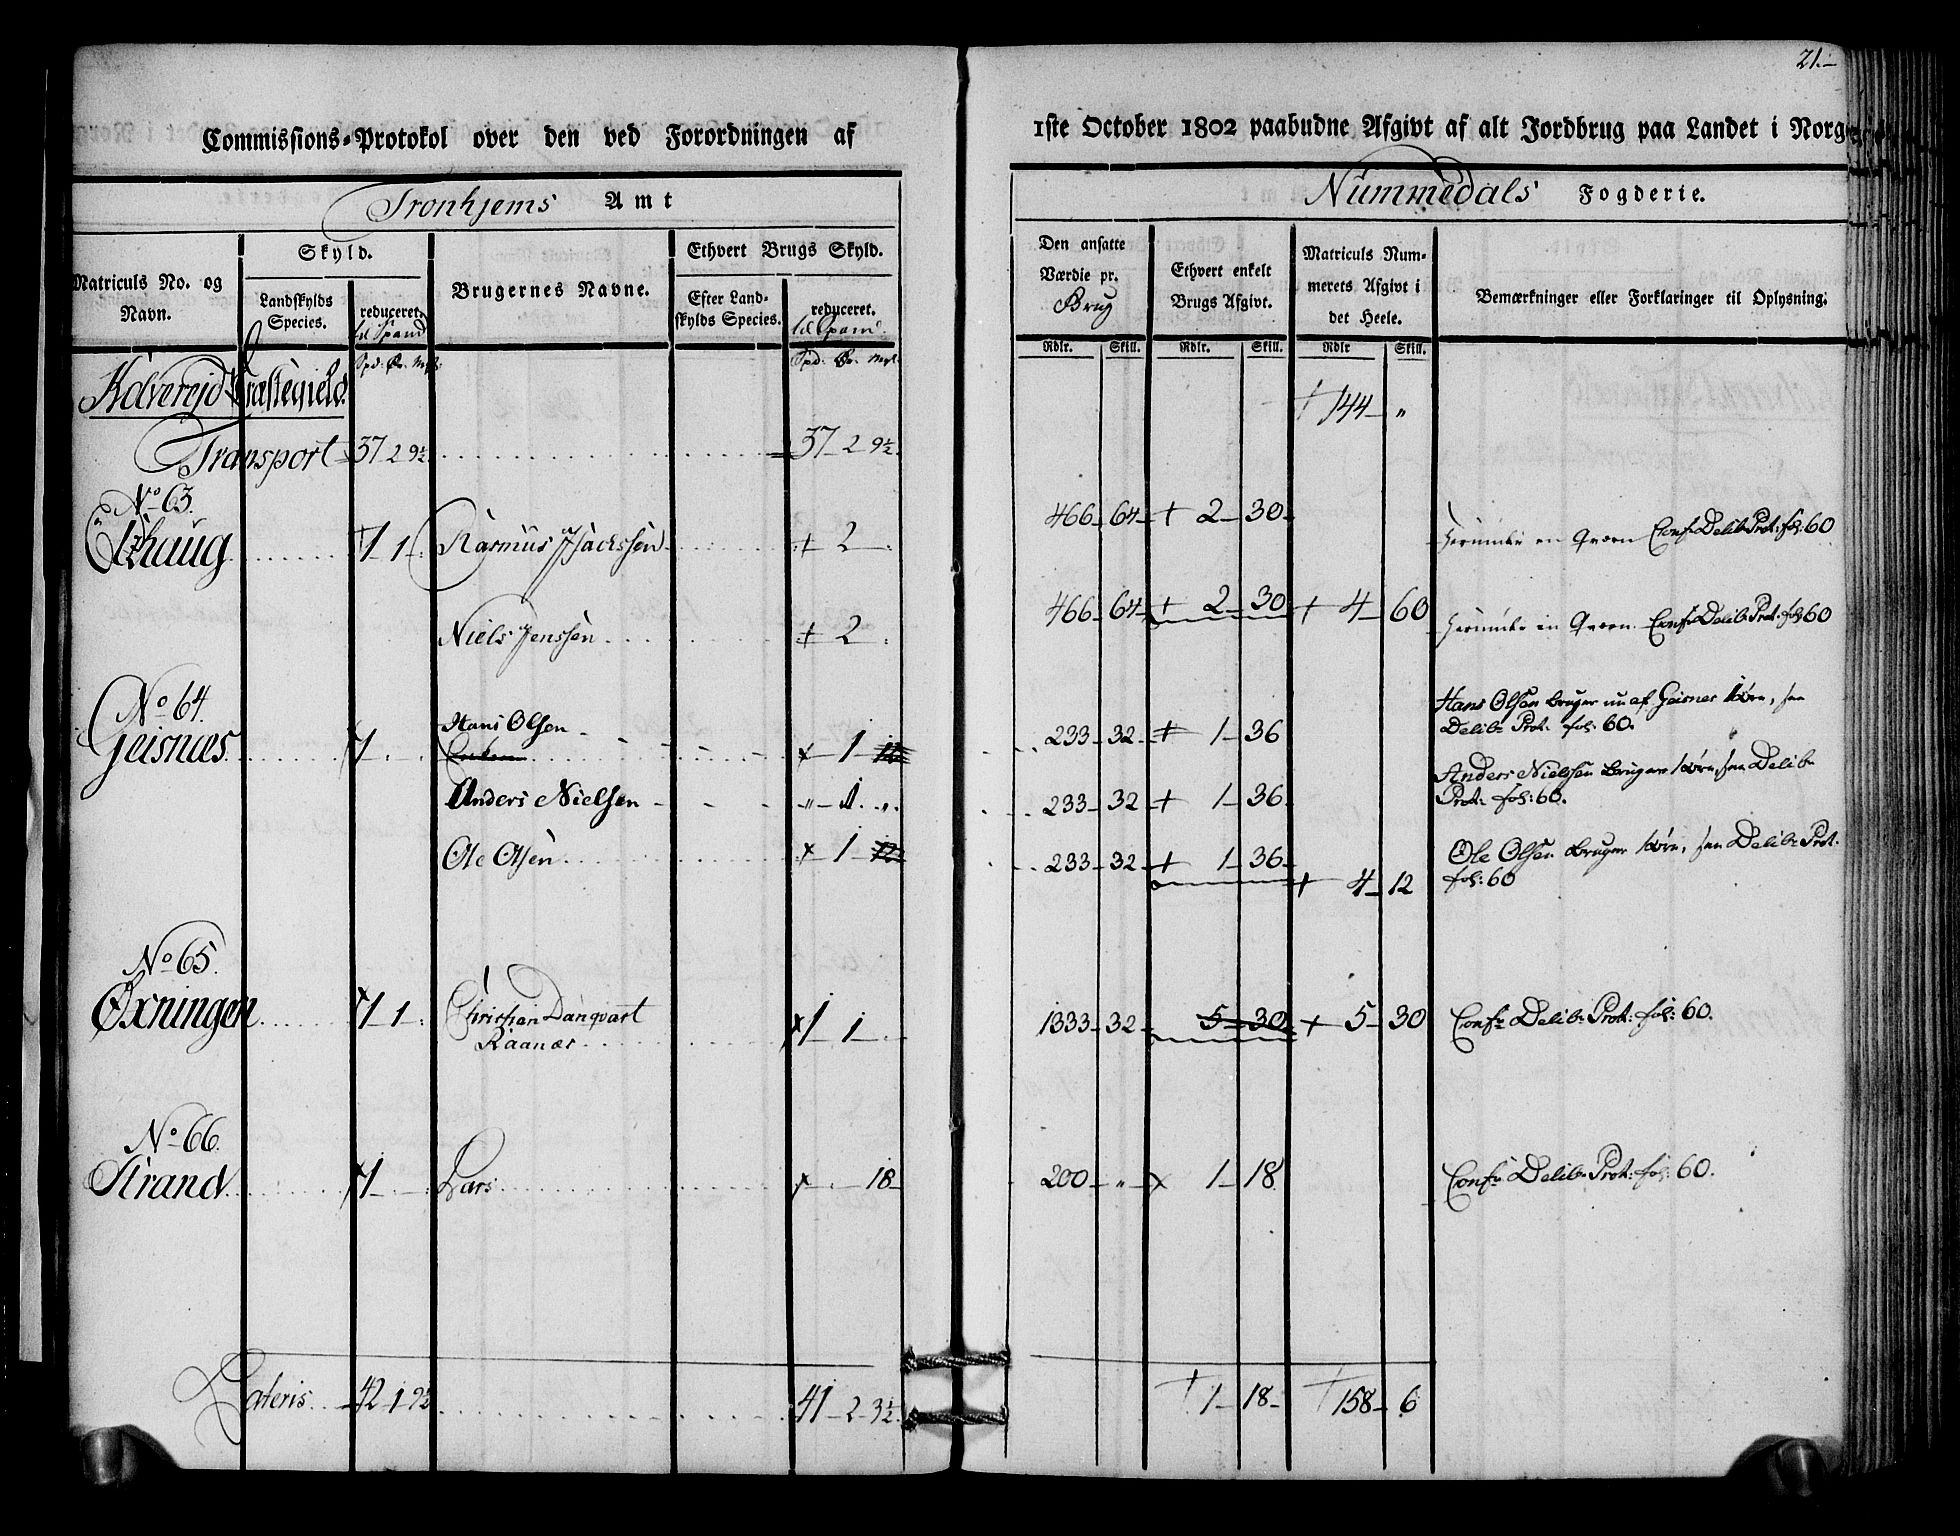 21.
Commissions-Protokol over den ved Forordningen af
1ste October 1802 paabudne Afgivt af alt Jordbrug paa Landet i Norg
Tronhjems Amt
Nummedals Fogderie.
Matriculs No. og Navn.
Skyld.
Landskylds Species.
reduceret.
til Spand
Brugernes Navne.
Ethvert Brugs Skyld.
Efter Landskylds Species.
reduceret.
til Spand.
Den ansatte Værdie pr. Brug
Ethvert enkelt Brugs Afgivt.
Matriculs Nummerets Afgivt i det Heele.
Bemærkninger eller Forklaringer til Oplysning.
Spd: Ør. Mrk:
Spd: Ør. Mrk:
Rdlr. Skill. Rdlr. Skill. Rdlr Skill.
Kolverejd Præstegield. 144 „
Transport 37 2 9½ 37 2 9½
No 63.
1 1 Rasmus Isachsen + 2 466 64 + 2 30 herunder en Qværn Confr Delib: Prot: fol: 60
Niels Jenssen + 2 466 64 + 2 30 + 4 60 herunder en Qværn Confr Delib: Prot: fol: 60
No 64.
Geisnæs 1 Hans Olsen 1 233 32 + 1 36 Hans Olsen bruger nu af Geisnes 1 Øre, see
Delib: Prot: fol: 60.
Anders Nielsen „ 1 „ 233 32 + 1 36 Anders Nielsen bruger 1 Øre, see Delib:
Prot: fol: 60.
Ole Olsen 1 233 32 + 1 36 + 4 12 Ole Olsen bruger 1 Øre, see Delib: Prot:
fol: 60
No 65.
Øxningen 1 1 Christian Danqvart
Raanæs 1 1 1333 32 5 30 + 5 30 Confr Delib: Prot: fol: 60.
No 66.
Strand 1 Lars 18 200 „ x 1 18 Confr Delib: Prot: fol: 60.
Lateris 42 1 9½ 41 2 3½ 1 18 158 6